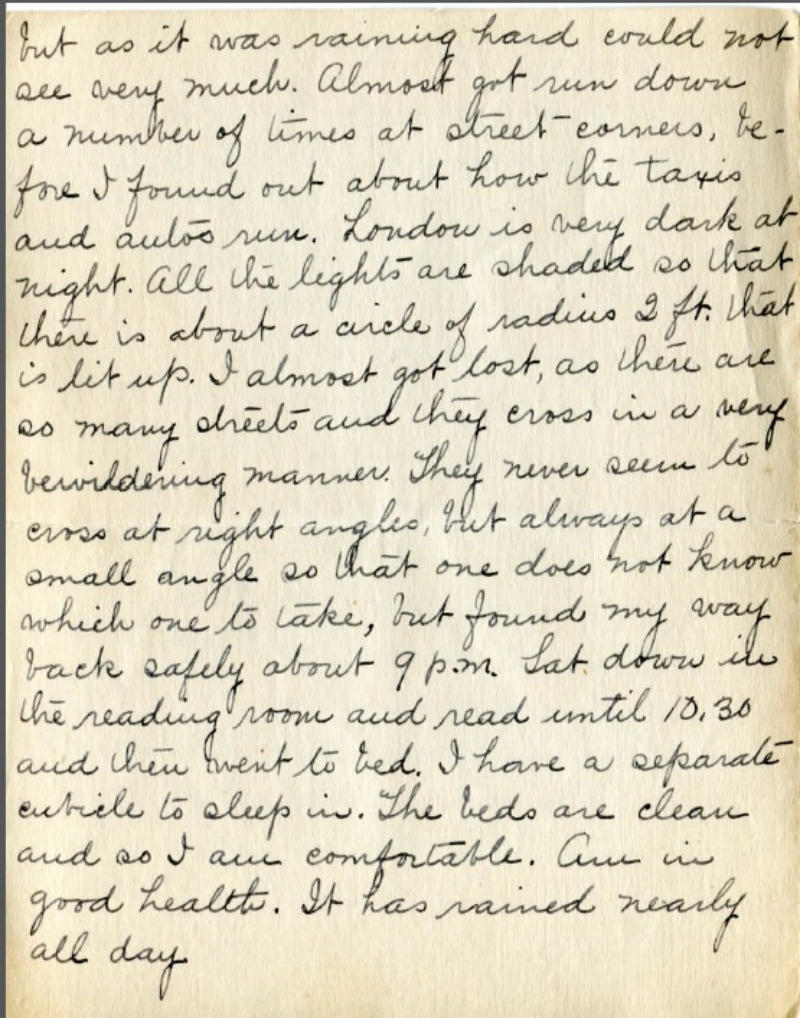 but as it was raining hard could not
see very much. Almost got run down
a number of times at street corners, be-
fore I found out about how the taxis
and autos run. London is very dark at
night. All the lights are shaded so that
there is about a circle of radius 2 ft. that
is lit up. I almost got lost, as there are
so many streets and they cross in a very
bewildering manner. They never seem to
cross at right angles, but always at a
small angle so that one does not know
which one to take, but found my way
back safely about 9 p.m. Sat down in
the reading room and read until 10.30
and then went to bed. I have a separate
cubicle to sleep in. The beds are clean
and so I am comfortable. Am in
good health. It has rained nearly
all day